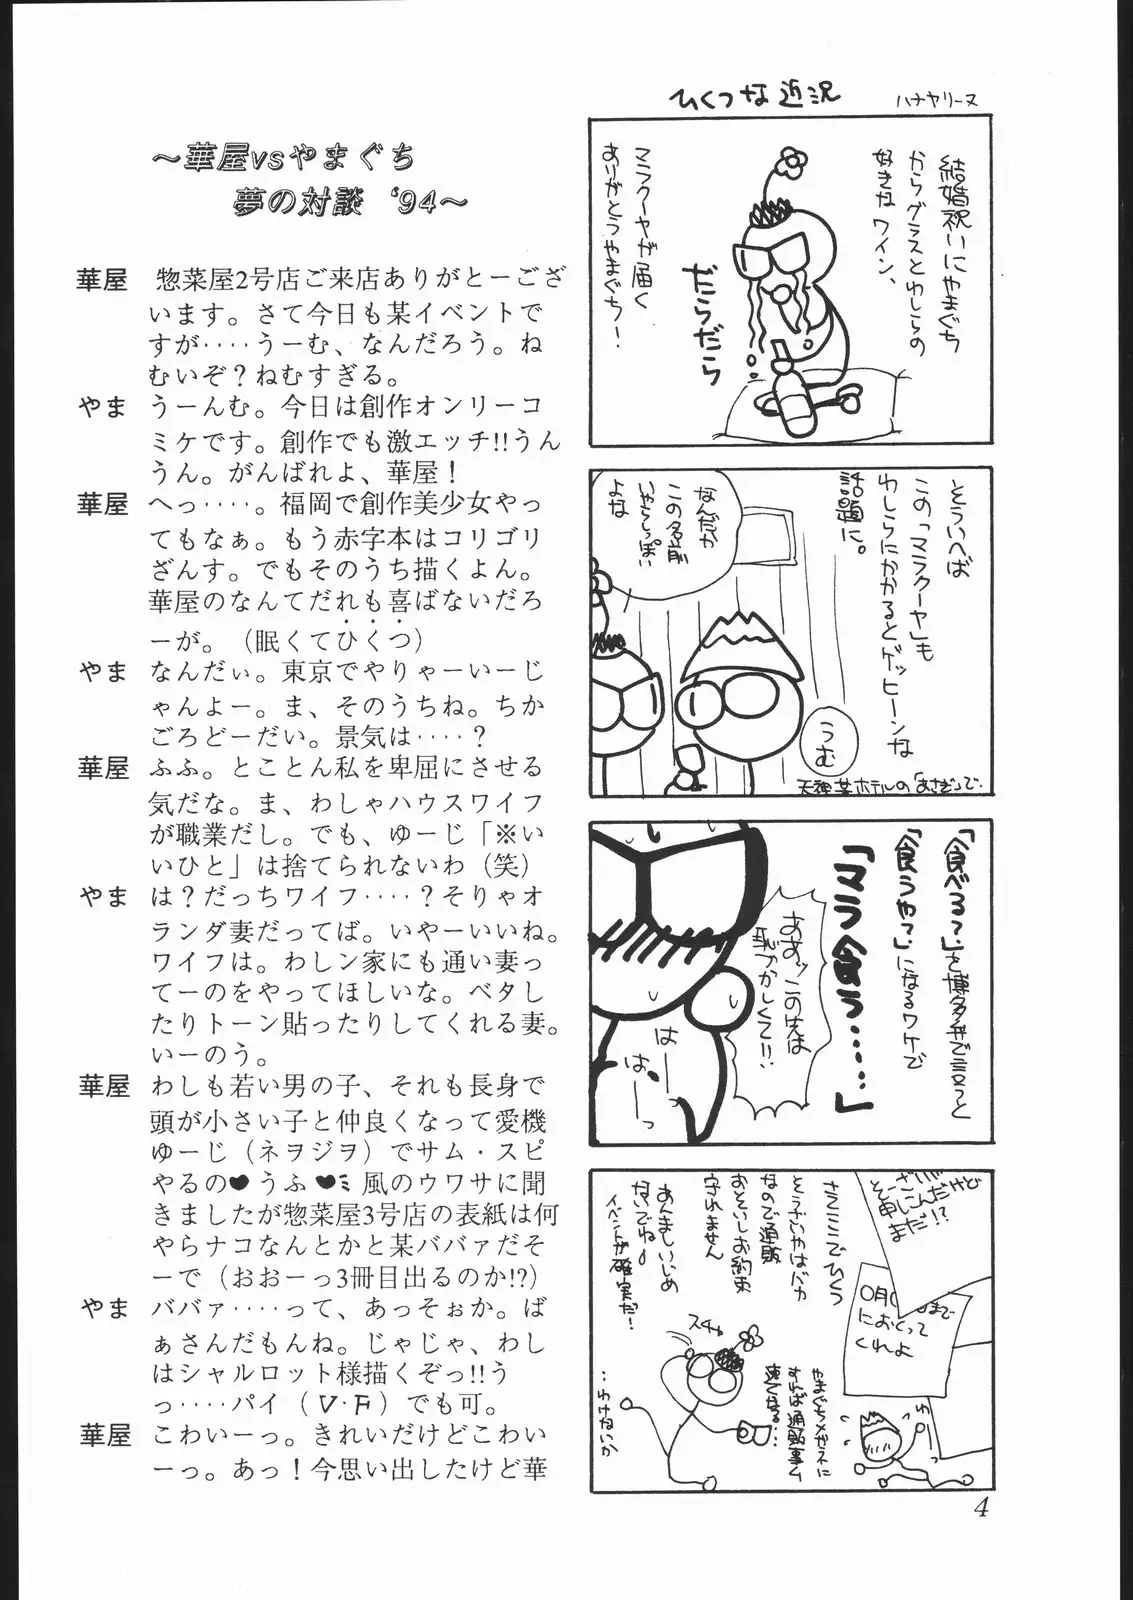 ～華屋vsやまぐち
夢の対談　'94～
華屋　惣菜屋2号店ご来店ありがとーござ
います。さて今日も某イベントで
すが‥‥うーむ、なんだろう。ね
むいぞ？ねむすぎる。
やま　うーんむ。今日は創作オンリーコ
ミケです。創作でも激エッチ!!うん
うん。がんばれよ、華屋！
華屋　へっ‥‥。福岡で創作美少女やっ
てもなぁ。もう赤字本はコリゴリ
ざんす。でもそのうち描くよん。
華屋のなんてだれも喜ばないだろ
ーが。（眠くてひくつ）
やま　なんだぃ。東京でやりゃーいーじ
ゃんよー。ま、そのうちね。ちか
ごろどーだい。景気は‥‥？
華屋　ふふ。とことん私を卑屈にさせる
気だな。ま、わしゃハウスワイフ
が職業だし。でも、ゆーじ「※い
いひと」は捨てられないわ（笑）
やま　は？だっちワイフ‥‥？そりゃオ
ランダ妻だってば。いやーいいね。
ワイフは。わしン家にも通い妻っ
てーのをやってほしいな。ベタし
たりトーン貼ったりしてくれる妻。
いーのう。
華屋　わしも若い男の子、それも長身で
頭が小さい子と仲良くなって愛機
ゆーじ（ネヲジヲ）でサム・スピ
やるの♥うふ♥ミ風のウワサに聞
きましたが惣菜屋3号店の表紙は何
やらナコなんとかと某ババァだそ
ーで（おおーっ3冊目出るのか!?）
やま　ババァ‥‥って、あっそぉか。ば
ぁさんだもんね。じゃじゃ、わし
はシャルロット様描くぞっ!!う
っ‥‥パイ（V・F）でも可。
華屋　こわいーっ。きれいだけどこわい
ーっ。あっ！今思い出したけど華
ひくつな近況　ハナヤリーヌ
結婚祝いにやまぐち
からグラスとわしらの
好きなワイン、
マラクーヤが届く
ありがとうやまぐち！
だらだら
とういへば
この「マラクーヤ」も
わしらにかかるとゲッヒーンな
話題に。
なんだか
この名前
いやらしっぽい
よな
うむ
天神某ホテルの「あさぎ」って‥
「食べるって」と博多弁で言うと
「食うやって」になるワケで
「マラ食う‥‥‥」
ああッこの先は
恥づかしくて!!
はー
はー
さてここでひくつ
とうといやはバカ
なので通販
おそいしお約束
守れません
あんましいじめ
ないでね
イベントが確実だ！
〇月〇〇まで
におくって
くれよ
スチャ
やまぐちメガネに
すれば通販事ム
速くなる‥‥
‥わけないか
4